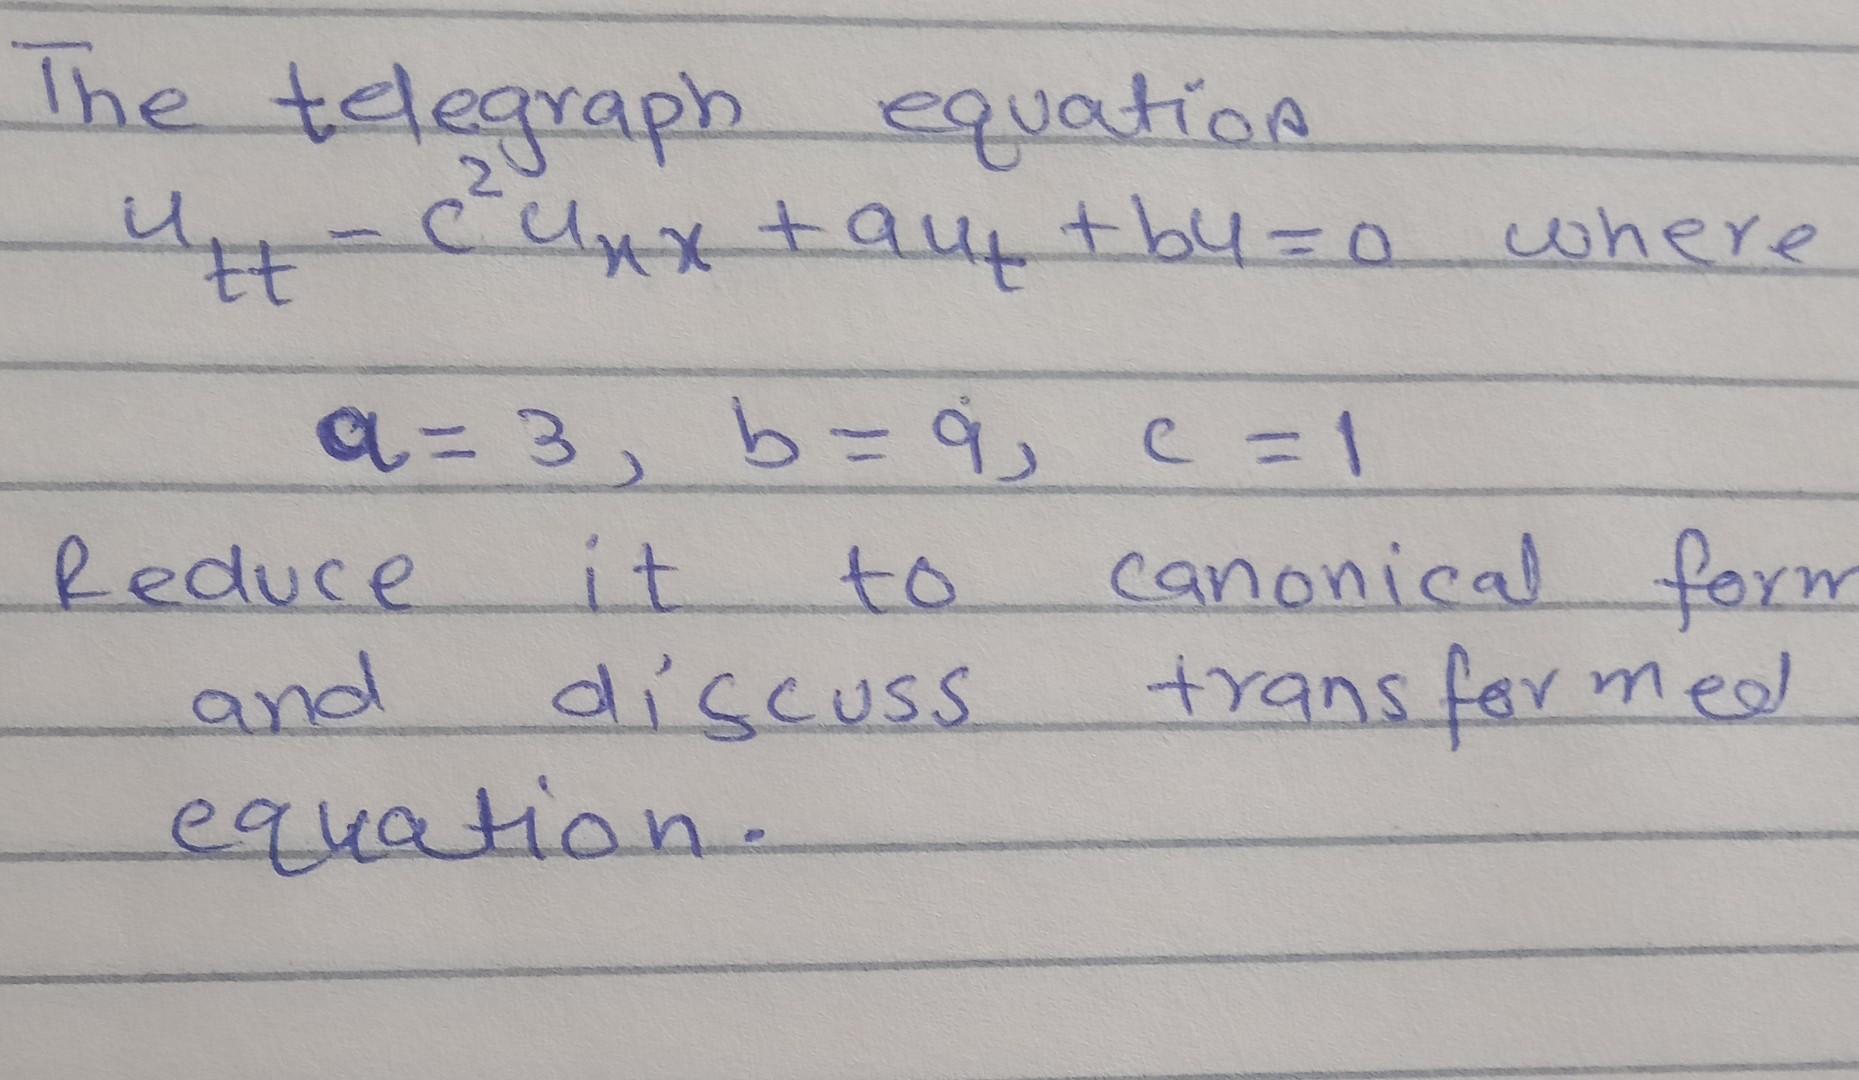 The telegraph equation
u_tt - c²u_xx + au_t + bu = 0 where
a = 3, b = 9, c = 1
Reduce it to canonical form
and discuss transformed
equation.